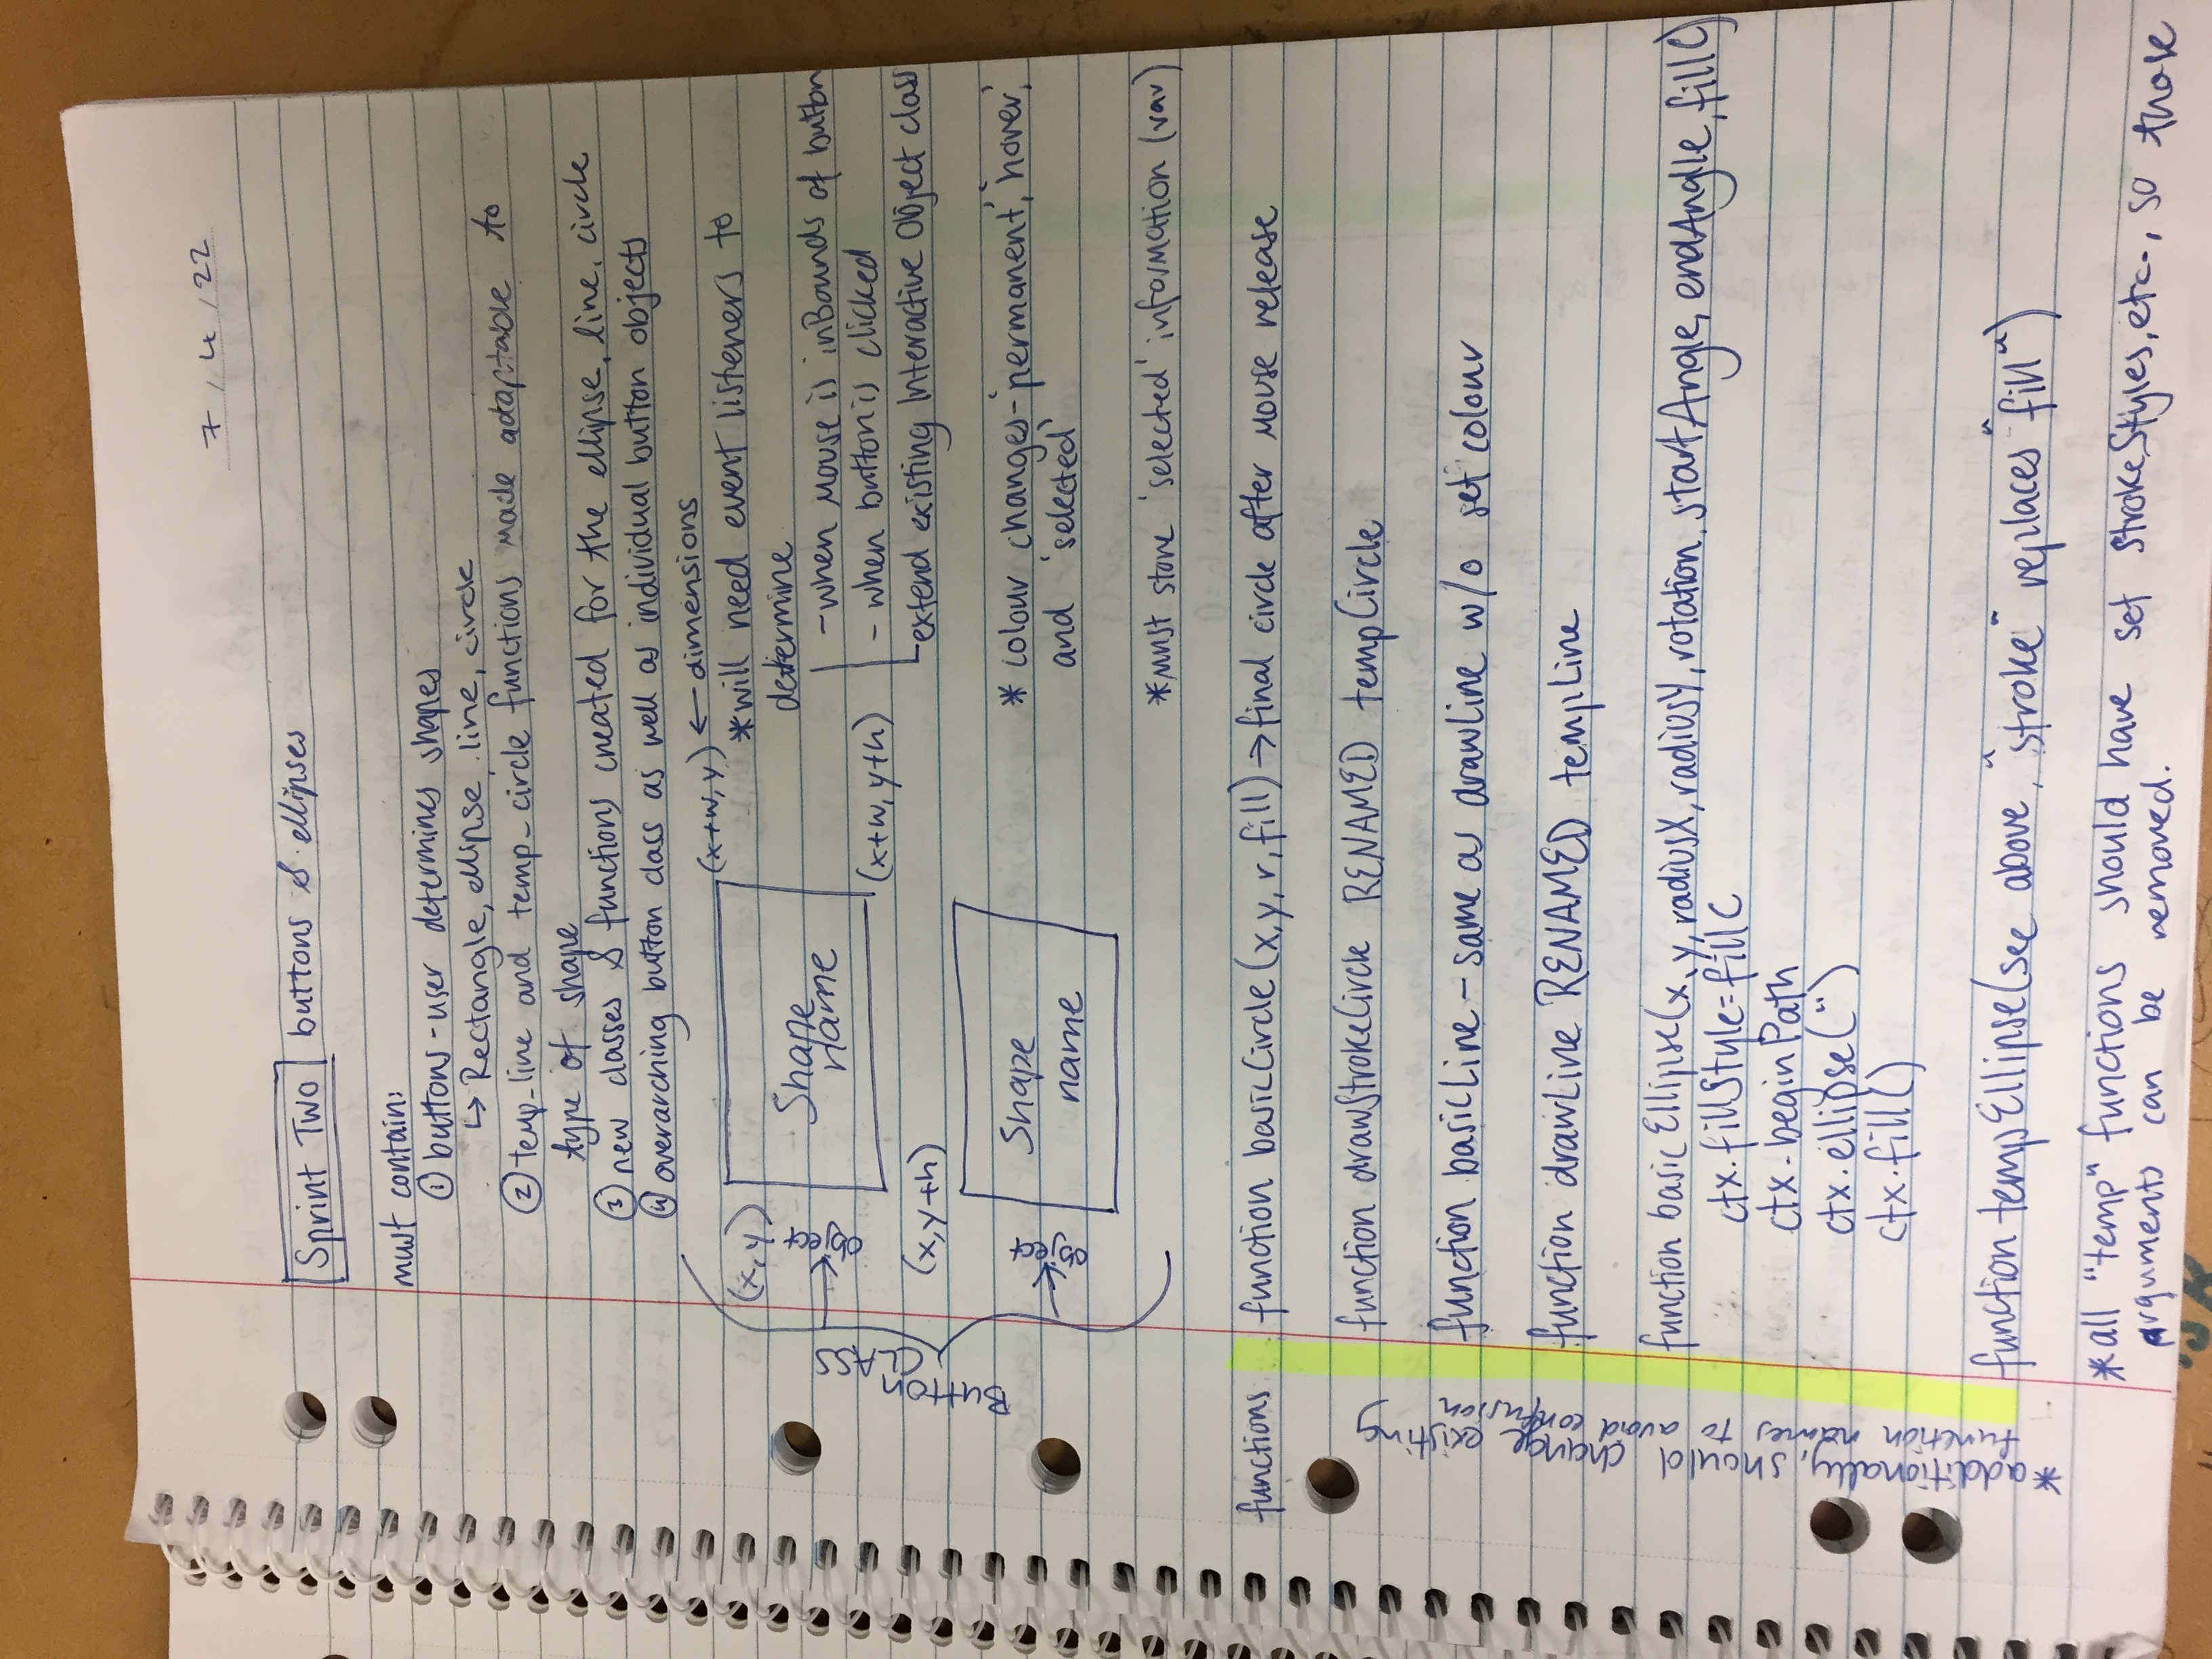 7 / 4 / 22
Sprint Two buttons & ellipses
must contain:
① buttons - user determines shapes
↳ Rectangle, ellipse, line, circle
② temp_line and temp_circle functions made adaptable to
type of shape
③ new classes & functions created for the ellipse, line, circle
④ overarching button class as well as individual button objects
Button
CLASS
(x, y)
(x+w, y) ← dimensions
object
Shape
name
(x+w, y+h)
(x, y+h)
*will need event listeners to
determine
- when mouse is inBounds of button
- when button is clicked
extend existing Interactive Object class
object
Shape
name
* colour changes - 'permanent', 'hover,'
and 'selected'
*must store 'selected' information (var)
functions
function basicCircle (x, y, r, fill) → final circle after mouse release
function drawStrokeCircle RENAMED tempCircle
function basicLine - same as drawLine w/o set colour
function drawLine RENAMED tempLine
function basicEllipse(x, y, radiusX, radiusY, rotation, startAngle, endAngle, fillC)
ctx.fillStyle=fillC
ctx.beginPath
ctx.ellipse(")
ctx.fill()
function tempEllipse(see above, "stroke" replaces "fill")
*additionally, should change existing
function names to avoid confusion
*all "temp" functions should have set strokeStyles, etc., so those
arguments can be removed.